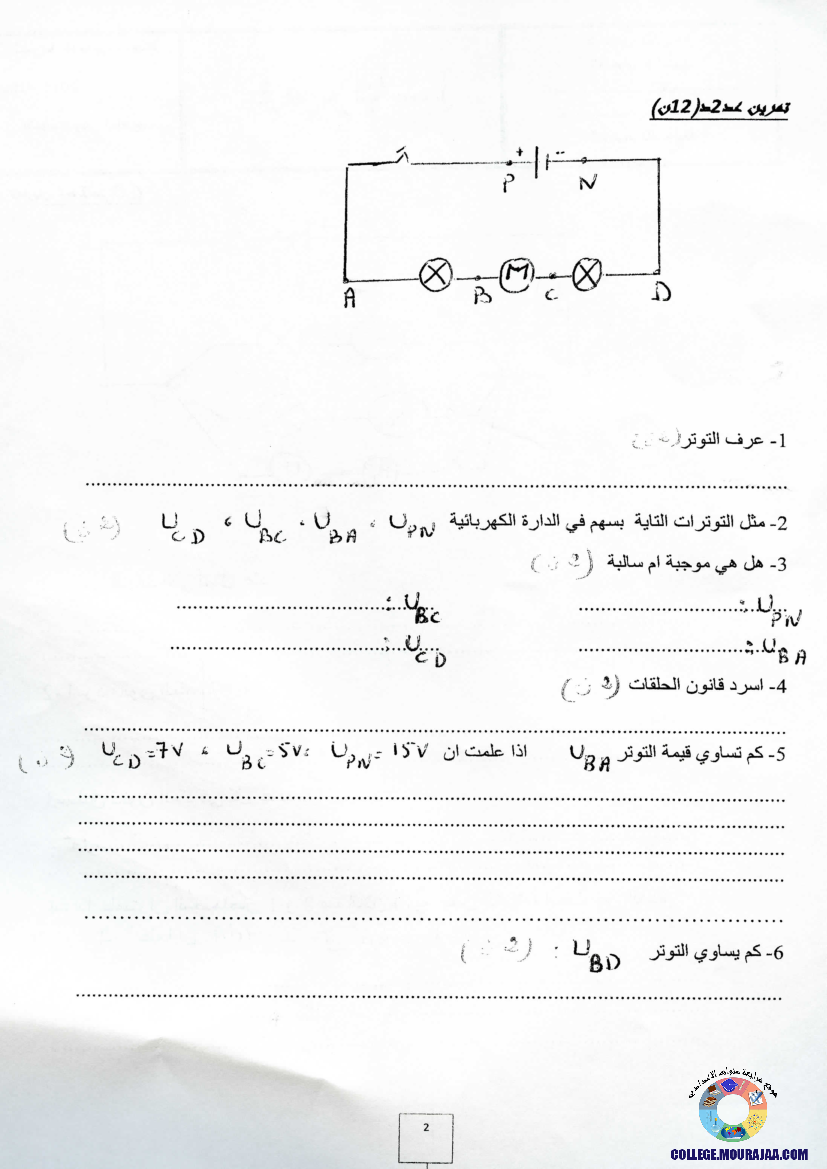 تمرين عدد2د(12ن)
+ -
P N
A B M C D
1- عرف التوتر
2- مثل التوترات التاية بسهم في الدارة الكهربائية U_PN ، U_BA ، U_BC ، U_CD (2ن)
3- هل هي موجبة ام سالبة (2ن)
U_PN : ........ U_BC : ........
U_BA : ........ U_CD : ........
4- اسرد قانون الحلقات (2ن)
5- كم تساوي قيمة التوتر U_BA اذا علمت ان U_PN = 15V ، U_BC = 5V ، U_CD = 7V
6- كم يساوي التوتر U_BD : (2ن)
موقع مراجعة
COLLEGE.MOURAJAA.COM
2